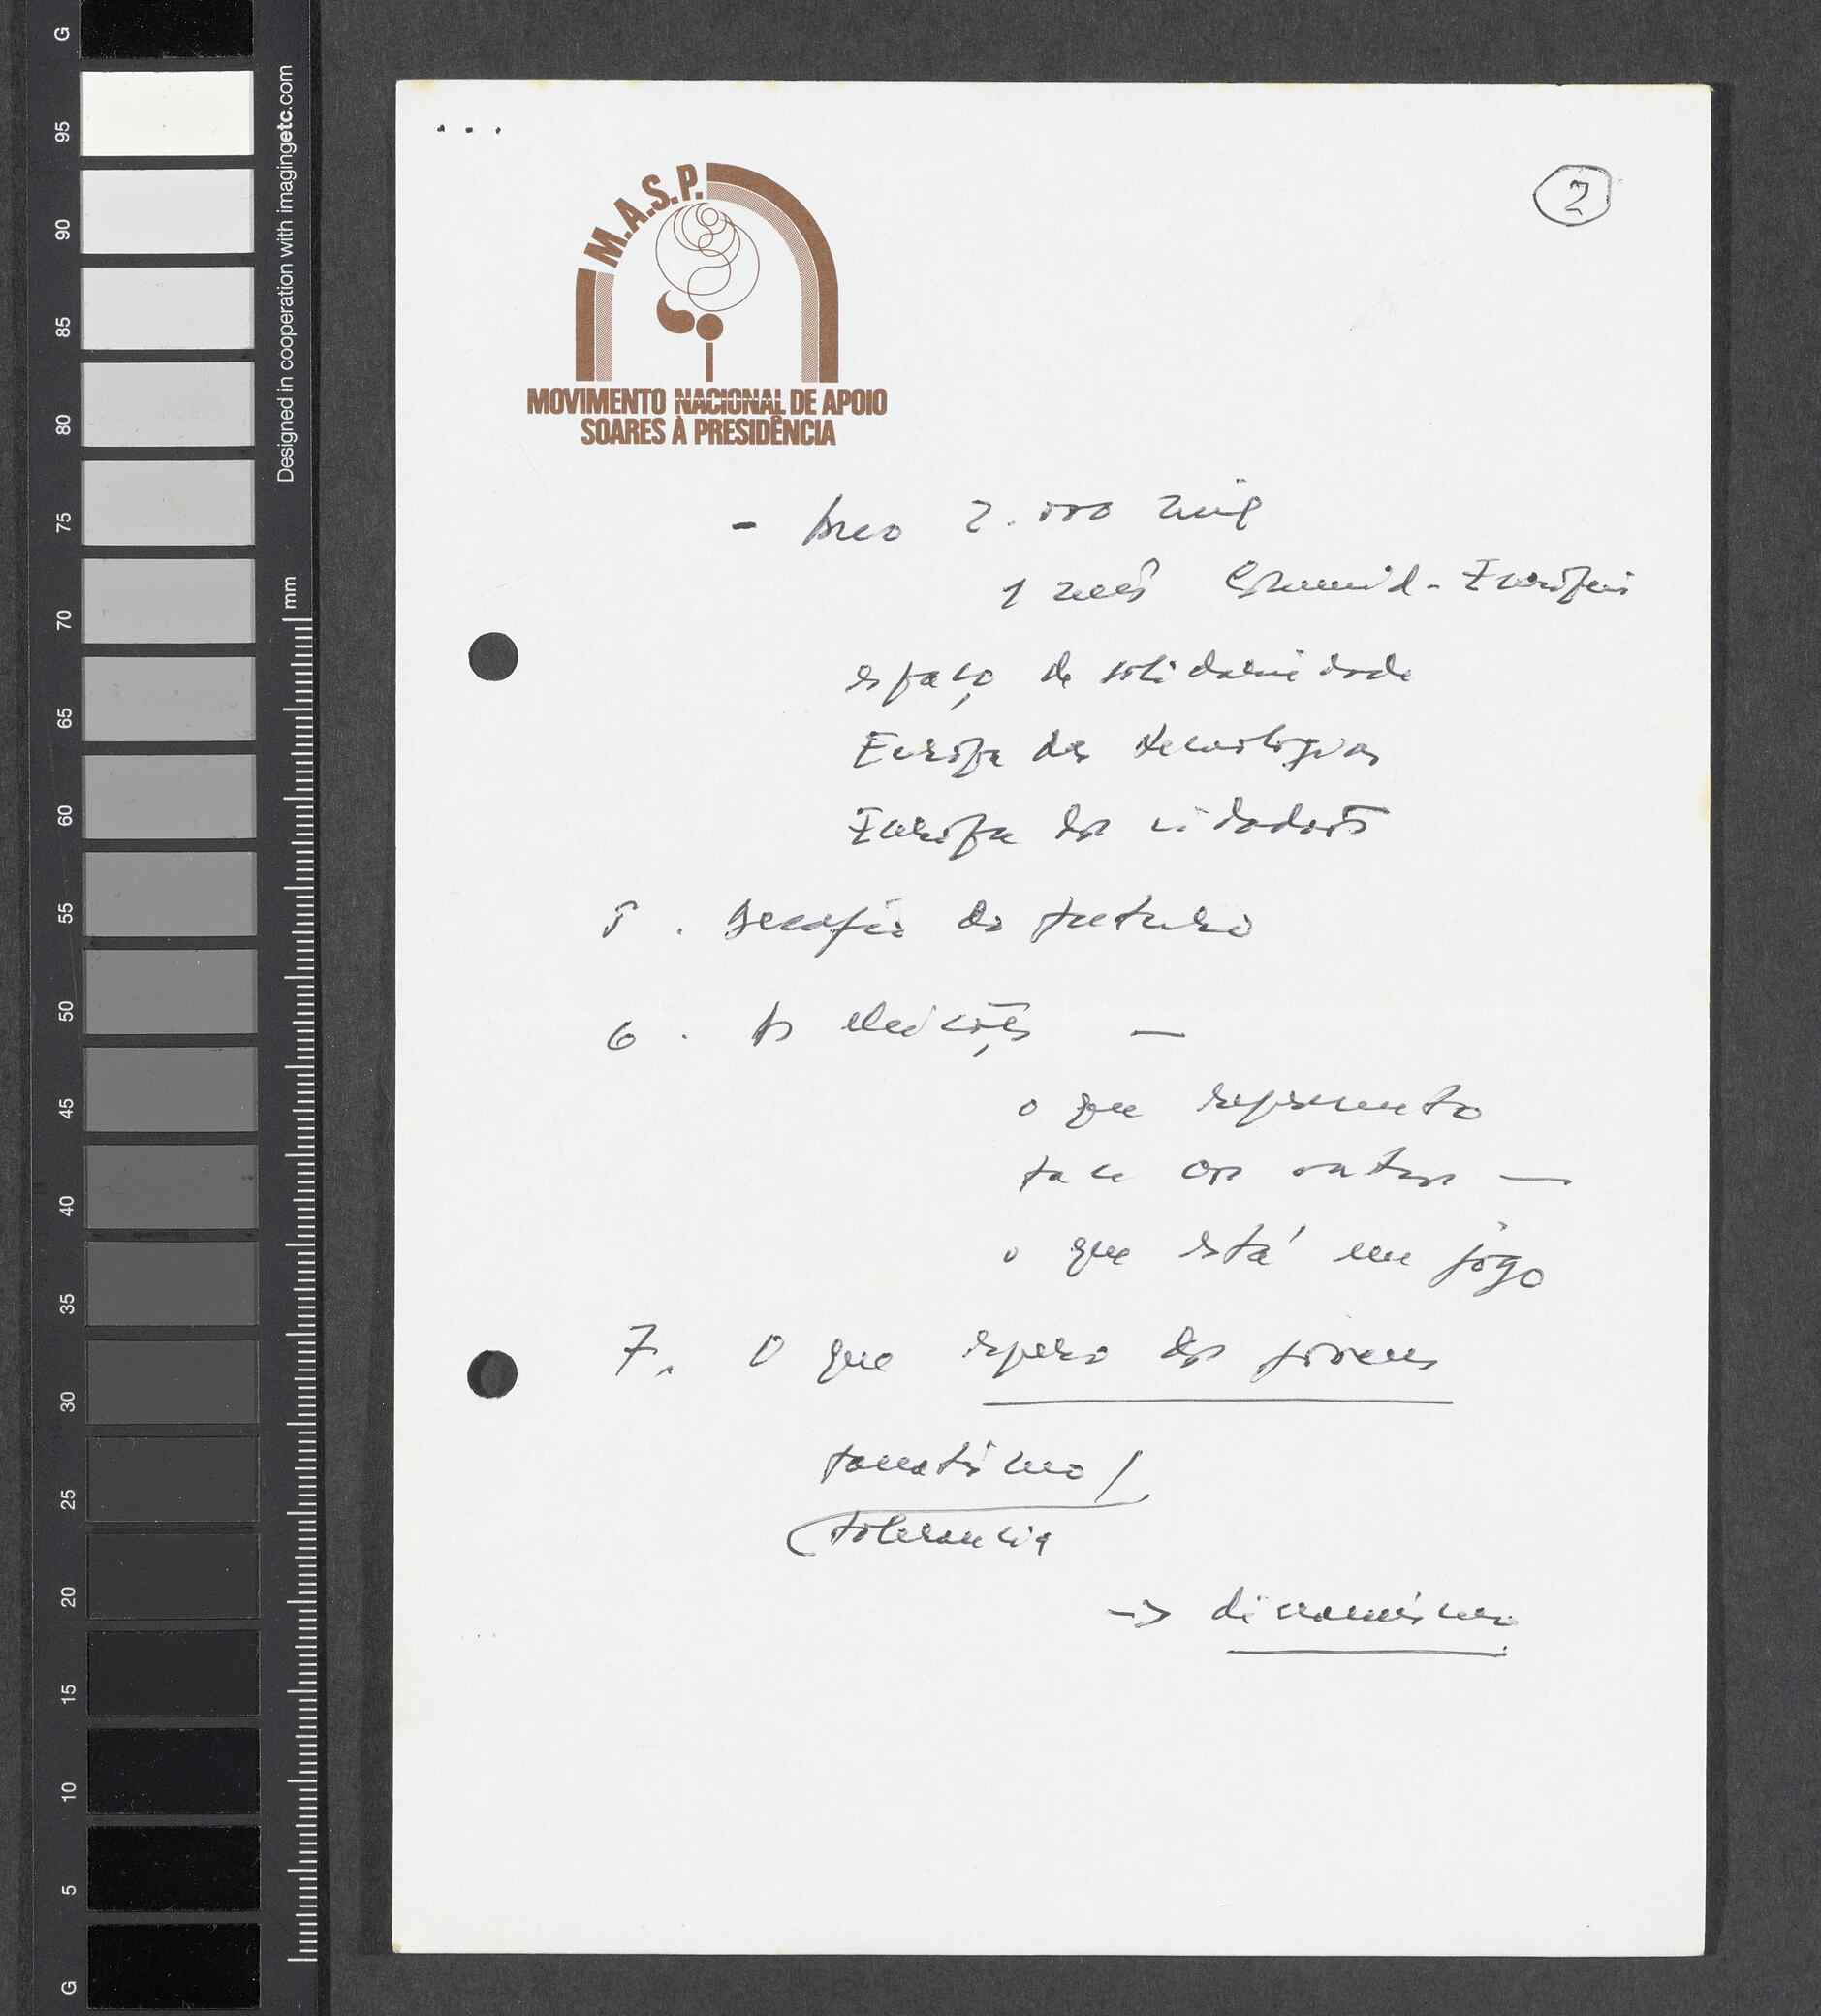 G
95
90
85
80
75
70
65
60
55
50
45
40
35
30
25
20
15
10
5
G
Designed in cooperation with imagingetc.com
mm
...
2
M.A.S.P.
MOVIMENTO NACIONAL DE APOIO
SOARES À PRESIDÊNCIA
- 2.000
1 Comunid. Europeia
espaço de solidariedade
Europa das tecnologias
Europa dos cidadãos
5. Desafio do futuro
6. As eleições —
o que represento
face aos outros —
o que está em jogo
7. O que espero dos jovens
fanatismo /
tolerancia
-> dinamismo